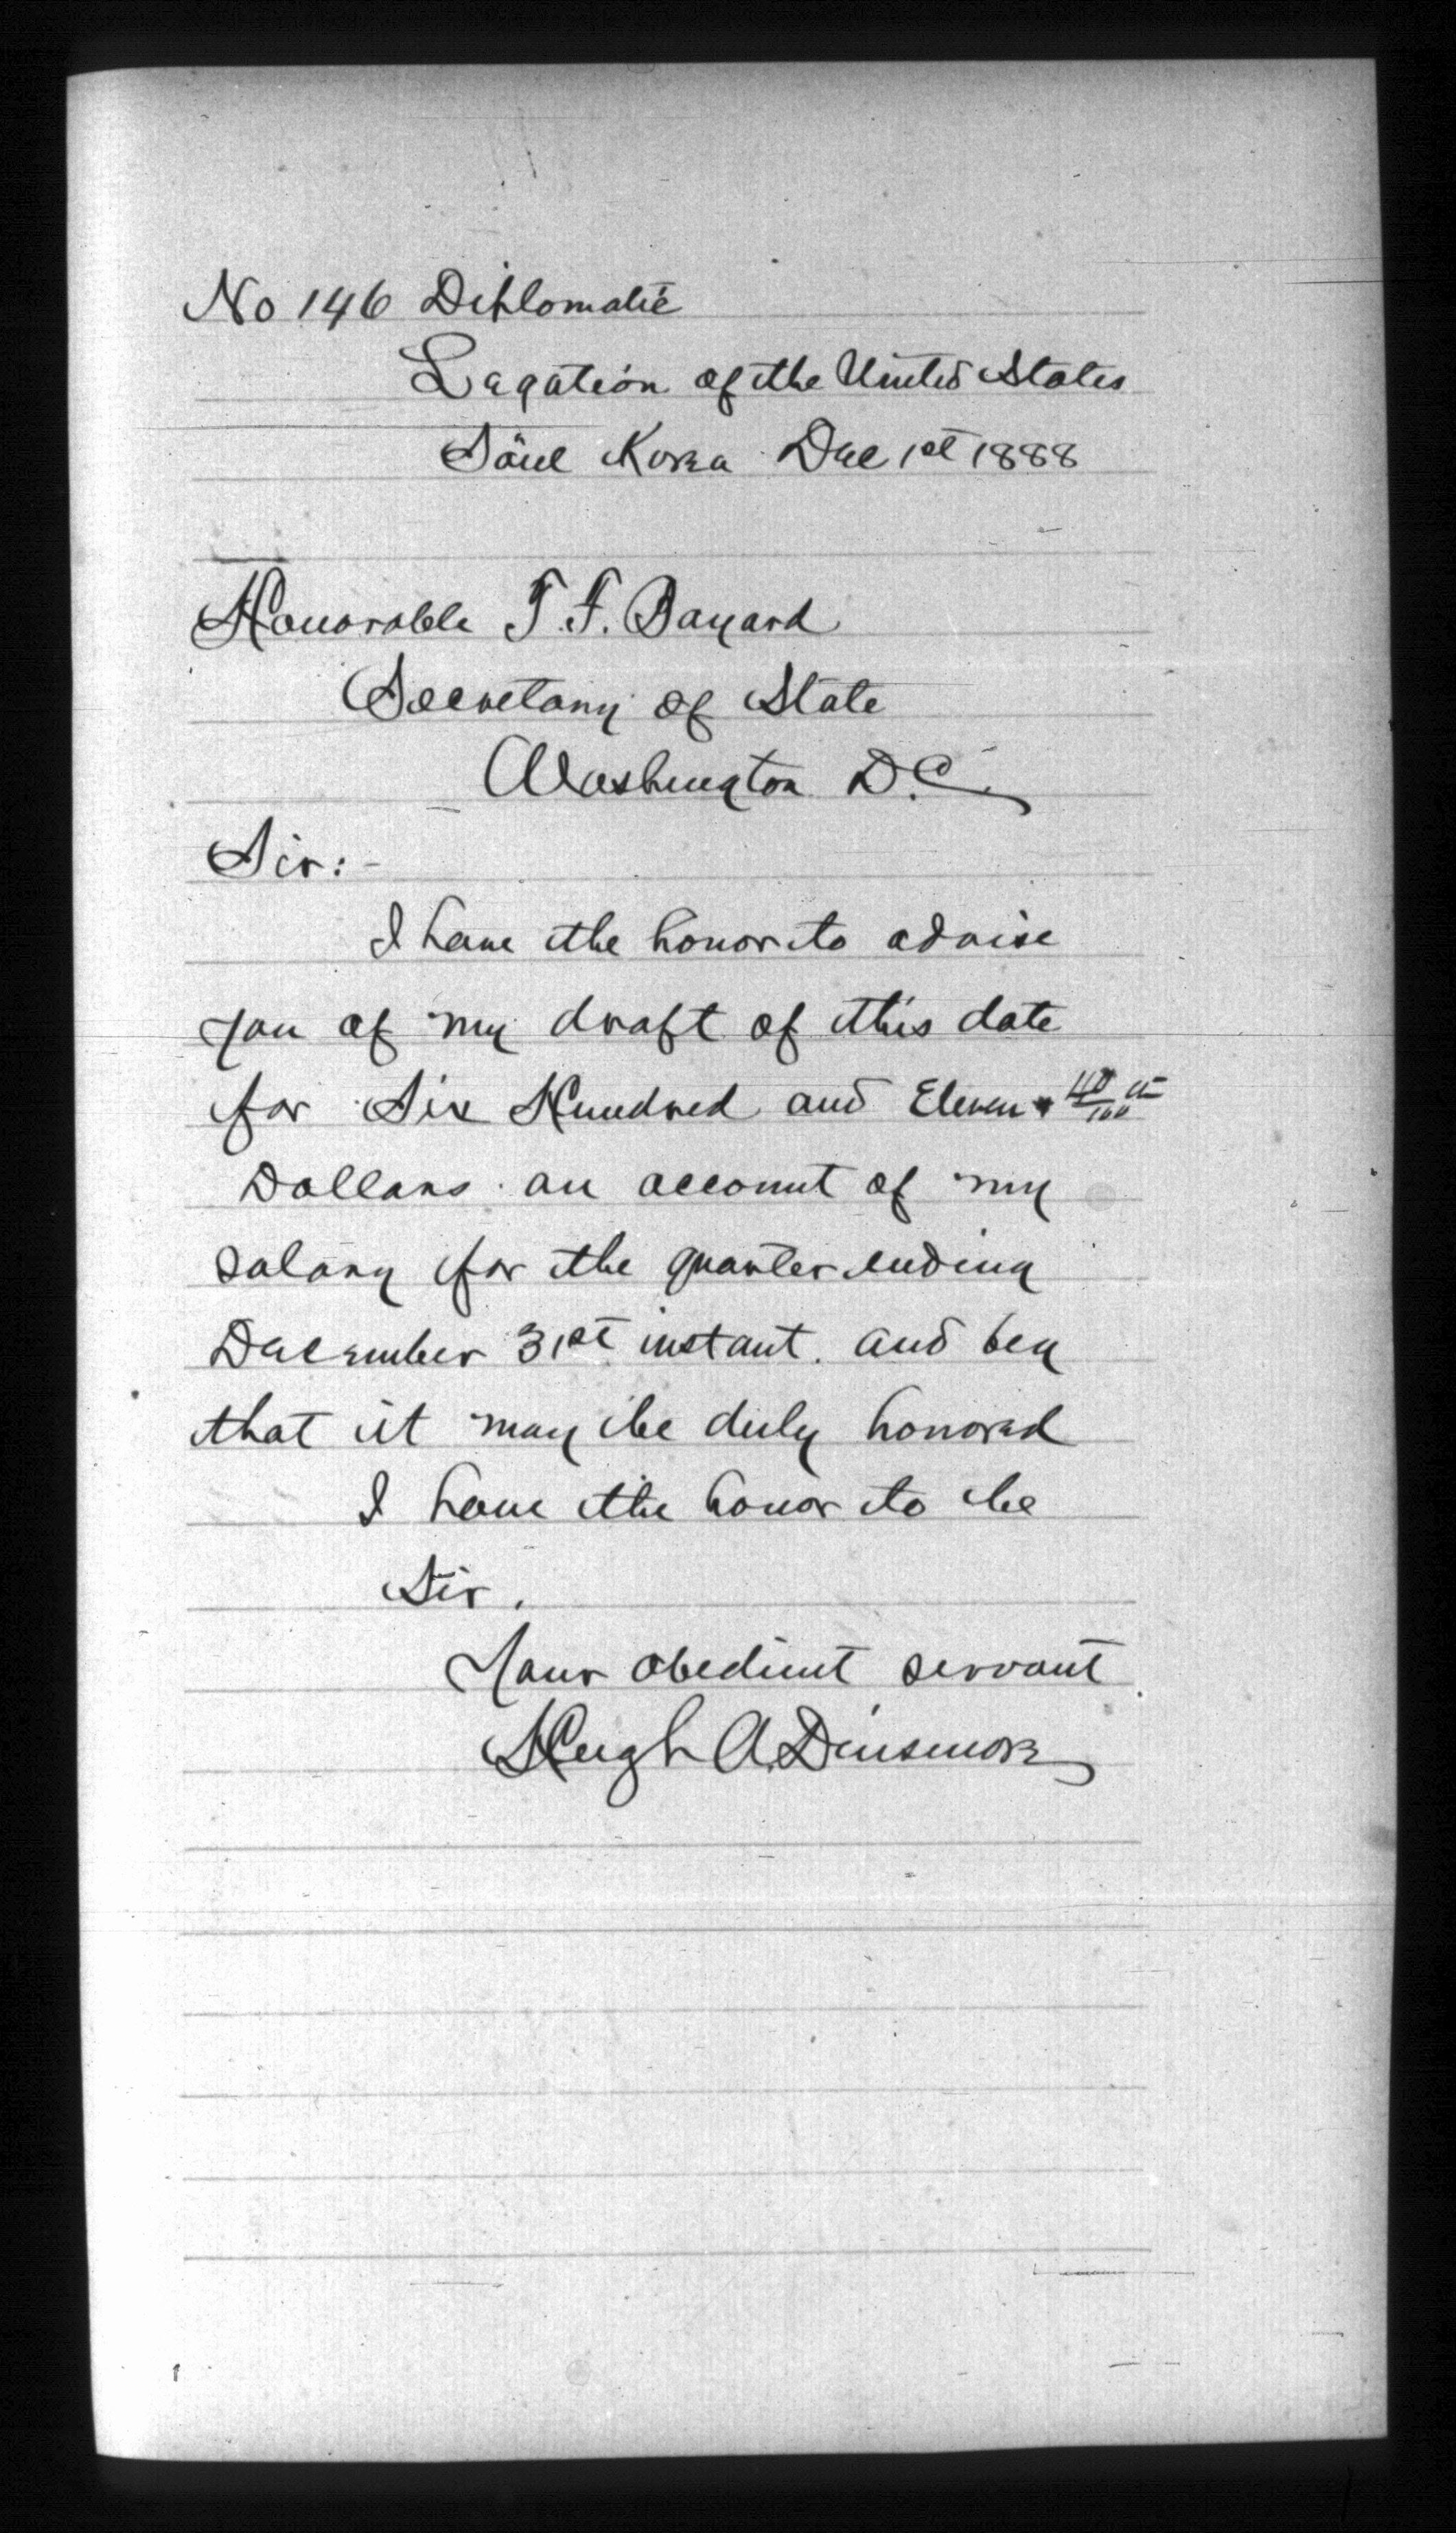 No 146 Diplomatic
Legation of the United States
Söul Korea Dec 1st 1888
Honorable T. F. Bayard
Secretary of State
Washington D.C.
Sir:-
I have the honor to advise
you of my draft of this date
for Six Hundred and Eleven 40/100
Dollars on account of my
salary for the quarter ending
December 31st instant. and beg
that it may be duly honored
I have the honor to be
Sir.
Your obedient servant
Hugh A. Dinsmore